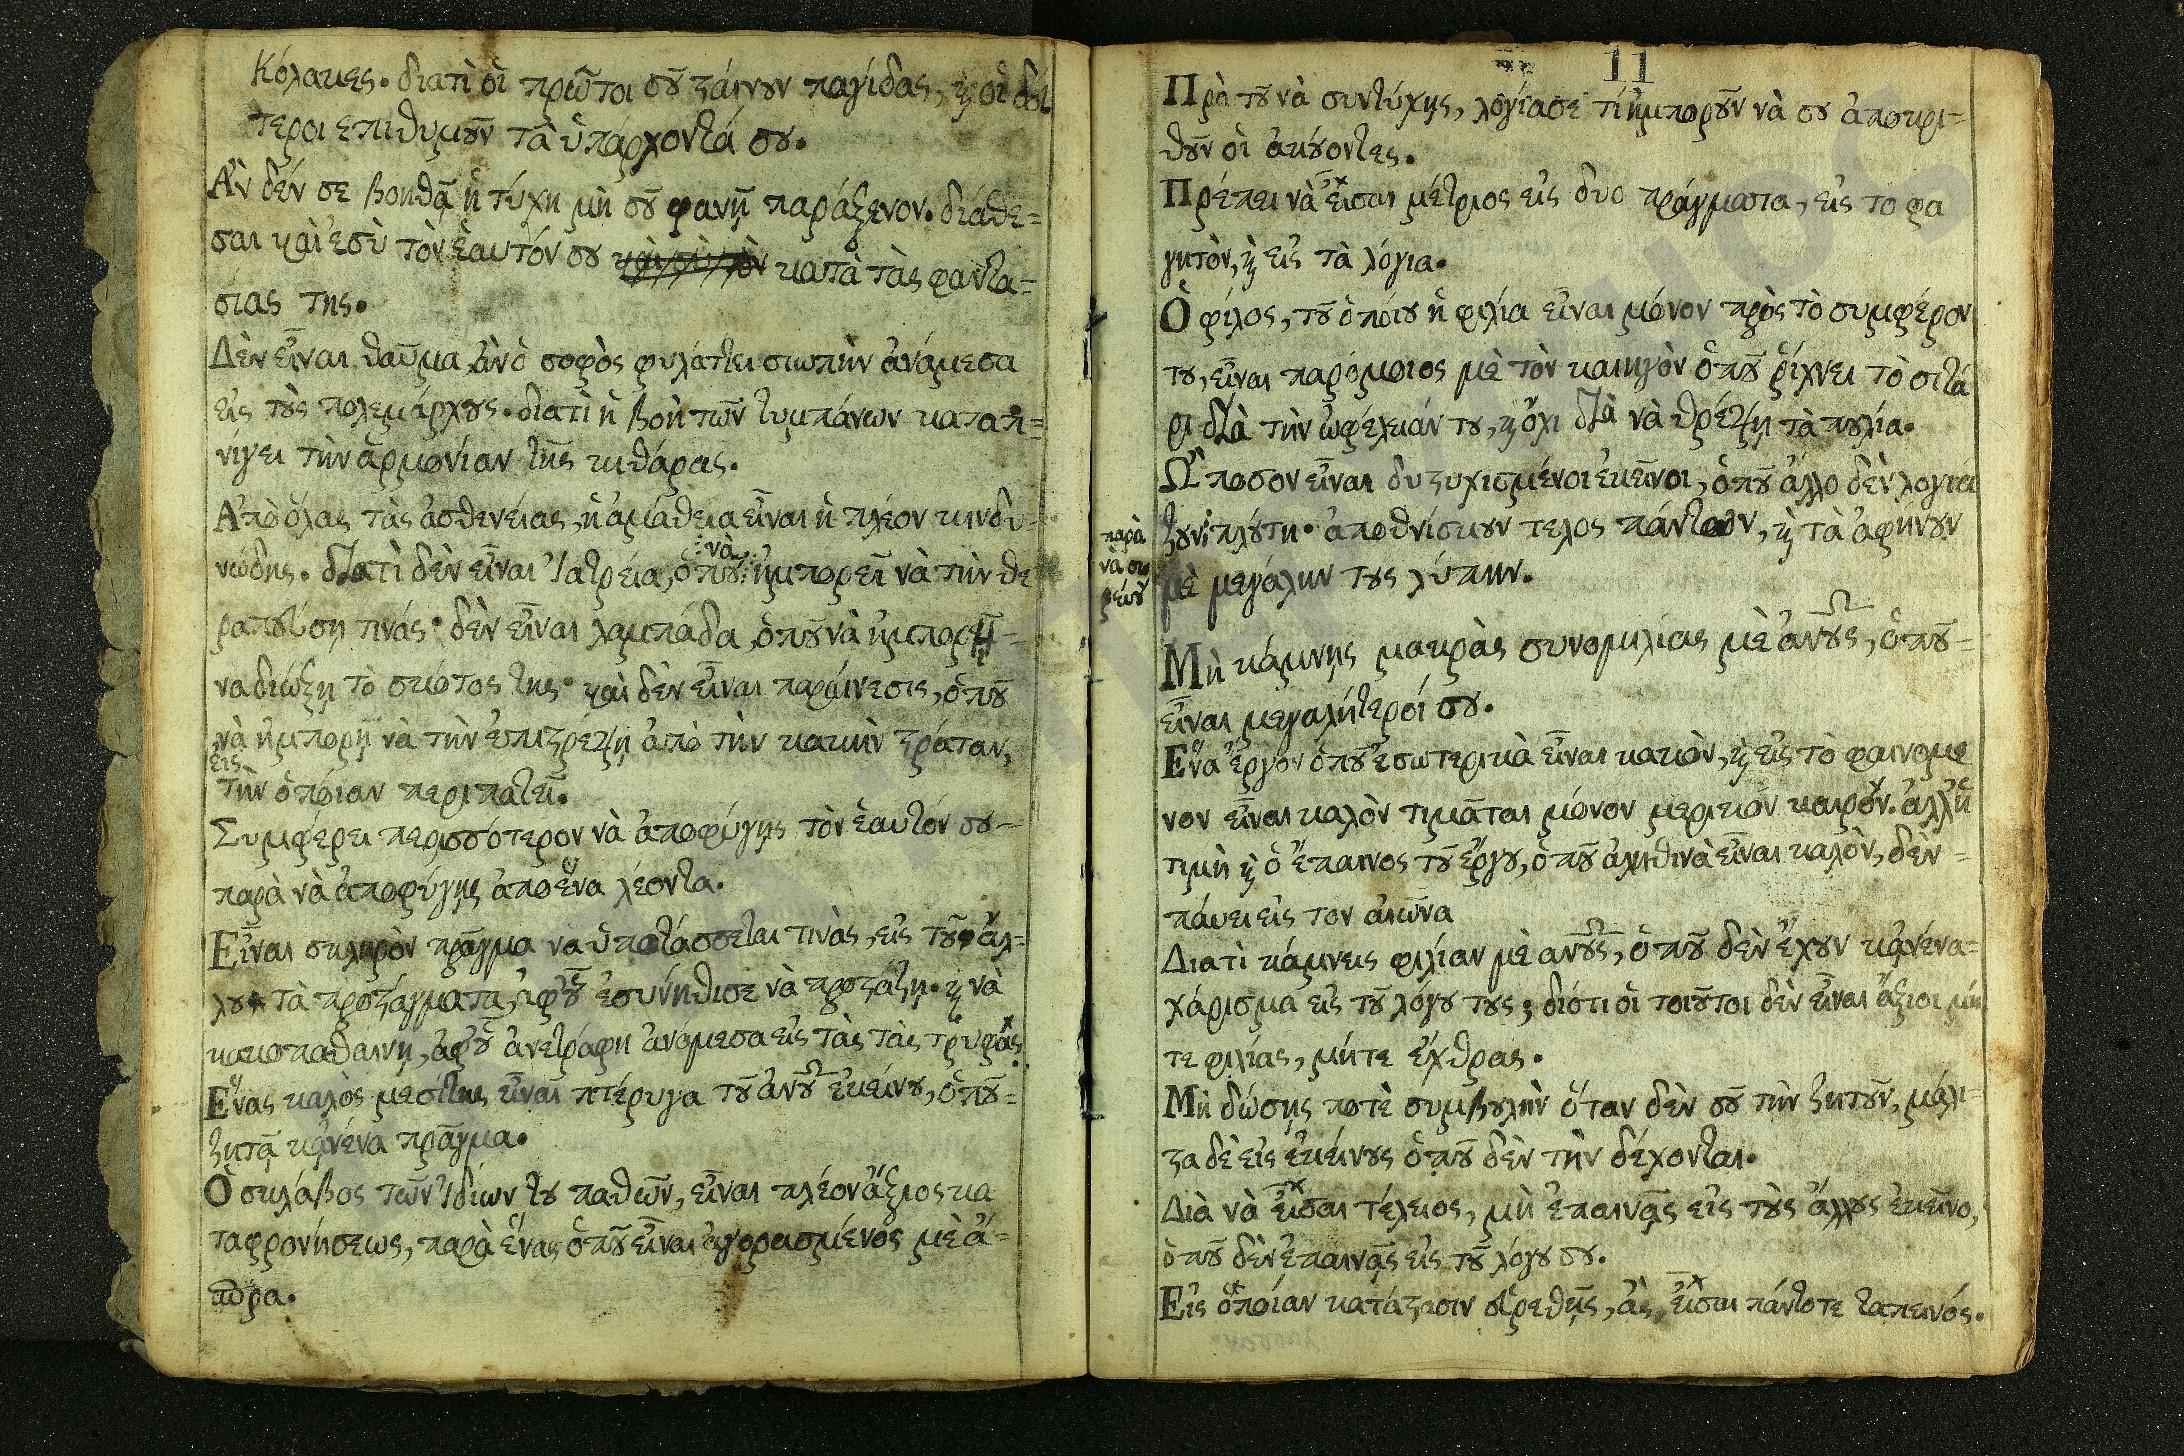 Κόλακες. διατὶ οἱ πρῶτοι σοῦ στένουν παγίδας, καὶ οἱ δεύ
τεροι επιθυμοῦν τὰ ὑπάρχοντά σου.
Ἂν δέν σε βοηθᾷ ἡ τύχη μὴ σοῦ φανῇ παράξενον. διάθε=
σαι καὶ ἐσὺ τὸν ἑαυτόν σου κατὰ τὰς φαντα=
σίας της.
Δὲν εἶναι θαῦμα ἂν ὁ σοφὸς φυλάττει σιωπὴν ἀνάμεσα
εἰς τοὺς πολεμάρχους. διατὶ ἡ βοὴ τῶν τυμπάνων καταπ=
νίγει τὴν ἁρμονίαν τῆς κιθάρας.
Ἀπὸ ὅλας τὰς ἀσθενείας, ἡ ἀμάθεια εἶναι ἡ πλέον κινδυ=
νώδης. διατὶ δὲν εἶναι Ἰατρεία, ὁποῦ νὰ ἠμπορεῖ νὰ τὴν θε
ραπεύσῃ τινάς· δὲν εἶναι λαμπάδα ὁποῦ νὰ ἠμπορῇ=
να διώξῃ τὸ σκότος της· καὶ δὲν εἶναι παραίνεσις, ὁποῦ
νὰ ἠμπορῇ νὰ τὴν ἐπιστρέψῃ ἀπὸ τὴν κακὴν στράταν,
εἰς
τὴν ὁποίαν περιπατεῖ.
Συμφέρει περισσότερον νὰ ἀποφύγῃς τὸν ἑαυτόν σου=
παρὰ νὰ ἀποφύγῃς ἀπὸ ἕνα λέοντα.
Εἶναι σκληρὸν πρᾶγμα να ὑποτάσσεται τινὰς, εἰς τοῦ ἄλ=
λου τὰ προστάγματα, ἀφ' οὗ ἐσυνήθισε νὰ προστάζῃ. καὶ νὰ
κακοπαθαίνῃ, ἀφ' οὗ ἀνετράφη ἀνάμεσα εἰς τὰς τὰς τρυφάς.
Ἕνας καλὸς μεσίτης εἶναι πτέρυγα τοῦ ἀνοῦ ἐκείνου, ὁποῦ=
ζητᾷ κανένα πρᾶγμα.
Ὁ σκλάβος τῶν Ἰδίων του παθῶν, εἶναι πλέον ἄξιος κα
ταφρονήσεως, παρὰ ἕνας ὁποῦ εἶναι ἀγορασμένος μὲ ἄ=
σπρα.
11
Πρὸ τοῦ νὰ συντύχῃς, λογίασε τί ἠμποροῦν νὰ σου ἀποκρι=
θοῦν οἱ ἀκούοντες.
Πρέπει νὰ εἶσαι μέτριος εἰς δυο πράγματα, εἰς το φα
γητὸν, καὶ εἰς τὰ λόγια.
Ὁ φίλος, τοῦ ὁποίου ἡ φιλία εἶναι μόνον πρὸς τὸ συμφέρον
του, εἶναι παρόμοιος μὲ τὸν κυνηγὸν ὁποῦ ῥίχνει τὸ σιτά
ρι διὰ τὴν ὠφέλειάν του, καὶ ὄχι διὰ νὰ θρέψῃ τὰ πουλία.
Ὢ πόσον εἶναι δυστυχισμένοι ἐκεῖνοι, ὁποῦ ἄλλο δὲν λογιά
ζουν πλούτη. ἀποθνίσκουν τελος πάντων, καὶ τὰ ἀφήνουν
παρὰ
νὰ σω
ρεύουν
μὲ μεγάλην τους λύπην.
Μὴ κάμνῃς μακρὰς συνομιλίας μὲ ἀνοὺς, ὁποῦ=
εἶναι μεγαλήτεροί σου.
Ἕνα ἔργον ὁποῦ ἐσωτερικὰ εἶναι κακὸν, καὶ εἰς τὸ φαινομε
νον εἶναι καλὸν τιμᾶται μόνον μερικὸν καιρόν. ἀλλ' ἡ
τιμὴ καὶ ὁ ἔπαινος τοῦ ἔργου, ὁποῦ ἀληθινὰ εἶναι καλὸν, δὲν=
πάυει εἰς τον ἀιῶνα
Διατὶ κάμνεις φιλίαν μὲ ανοὺς, ὁποῦ δὲν ἔχουν κανένα=
χάρισμα εἰς τοῦ λόγου τους; διότι οἱ τοιοῦτοι δὲν εἶναι ἄξιοι μή
τε φιλίας, μήτε ἔχθρας.
Μὴ δώσῃς ποτὲ συμβουλὴν ὅταν δὲν σοῦ τὴν ζητοῦν, μάλι=
στα δὲ εἰς ἐκείνους ὁποῦ δὲν τὴν δέχονται.
Διὰ νὰ εἶσαι τέλειος, μὴ ἐπαινᾷς εἰς τοὺς ἄλλους ἐκεῖνο,
ὁποῦ δὲν ἐπαινᾷς εἰς τοῦ λόγου σου.
Εἰς ὁποίαν κατάστασιν εὑρεθῇς, ἂς εἶσαι πάντοτε ταπεινός.